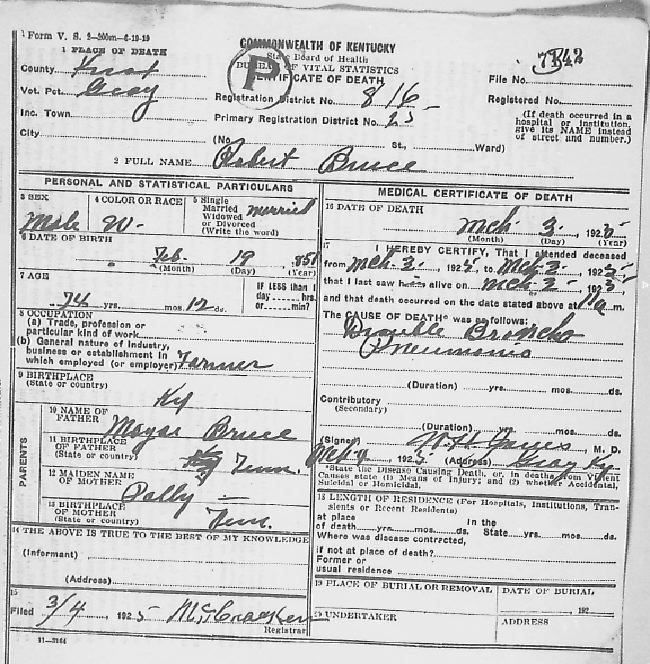 Form V. S. 2-200m-6-19-19
COMMONWEALTH OF KENTUCKY
State Board of Health
BUREAU OF VITAL STATISTICS
CERTIFICATE OF DEATH
P
1 PLACE OF DEATH
County Knox
Vot. Pct. Gray
Inc. Town
City
File No. 7842
Registered No.
Registration District No. 816
Primary Registration District No. 25
(If death occurred in a hospital or institution, give its NAME instead of street and number.)
(No. St., Ward)
2 FULL NAME Robert Bruce
PERSONAL AND STATISTICAL PARTICULARS
3 SEX
Male
4 COLOR OR RACE
W-
5 Single
Married
Widowed
or Divorced
(Write the word)
Married
6 DATE OF BIRTH
Feb. 19 1851
(Month) (Day) (Year)
7 AGE
74 yrs. mos. 12 ds.
IF LESS than 1
day hrs.
or min?
8 OCCUPATION
(a) Trade, profession or
particular kind of work
(b) General nature of industry,
business or establishment in
which employed (or employer) Farmer
9 BIRTHPLACE
(State or country)
Ky
PARENTS
10 NAME OF
FATHER
Bruce
11 BIRTHPLACE
OF FATHER
(State or country)
Tenn.
12 MAIDEN NAME
OF MOTHER
Polly -
13 BIRTHPLACE
OF MOTHER
(State or country)
Tenn.
14 THE ABOVE IS TRUE TO THE BEST OF MY KNOWLEDGE
(Informant)
(Address)
15
Filed 3/4 1925
McCracken
Registrar
11-3184
MEDICAL CERTIFICATE OF DEATH
16 DATE OF DEATH
Mch 3, 1925
(Month) (Day) (Year)
17 I HEREBY CERTIFY, That I attended deceased
from Mch. 3 - 1925, to Mch. 3, 1925
that I last saw h alive on Mch - 3 1925
and that death occurred on the date stated above at 11 a m.
The CAUSE OF DEATH* was as follows:
Double Broncho
Pneumonia
(Duration) yrs. mos. ds.
Contributory
(Secondary)
(Duration) yrs. mos. ds.
(Signed) M. D.
Mch 4 1925 (Address) Gray Ky.
*State the Disease Causing Death, or, in deaths from Violent
Causes state (1) Means of Injury; and (2) whether Accidental,
Suicidal or Homicidal.
18 LENGTH OF RESIDENCE (For Hospitals, Institutions, Transients or Recent Residents)
at place
of death yrs. mos. ds.
In the
State yrs. mos. ds.
Where was disease contracted,
if not at place of death?
Former or
usual residence
19 PLACE OF BURIAL OR REMOVAL
DATE OF BURIAL
192
20 UNDERTAKER
ADDRESS